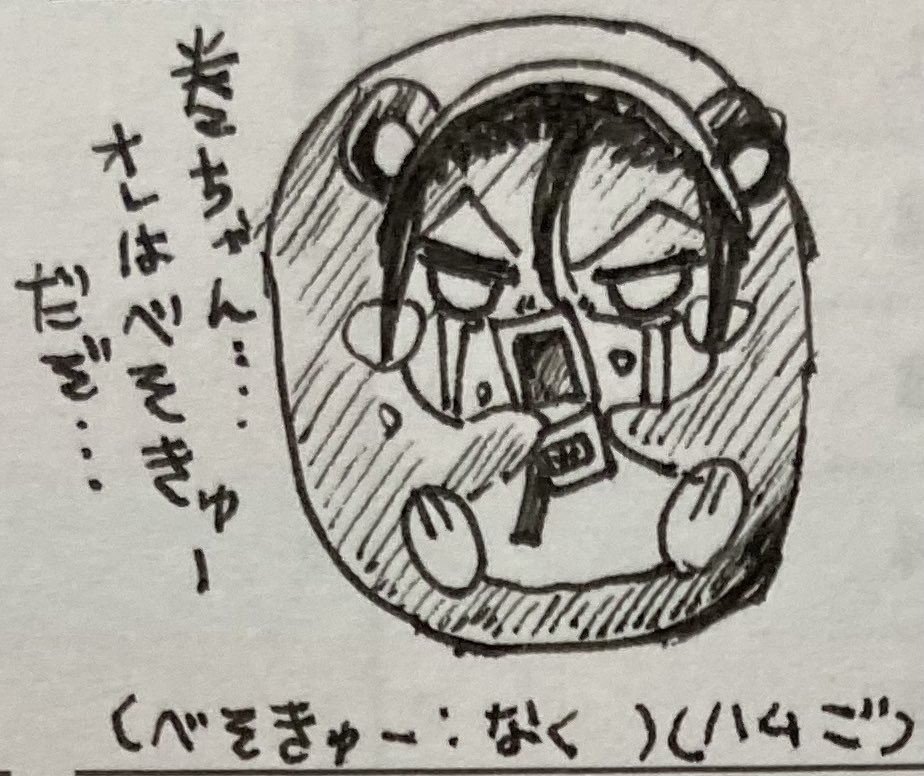 巻ちゃん…
オレはべそきゅー
だぞ…
(べそきゅー：なく)(ハムご)